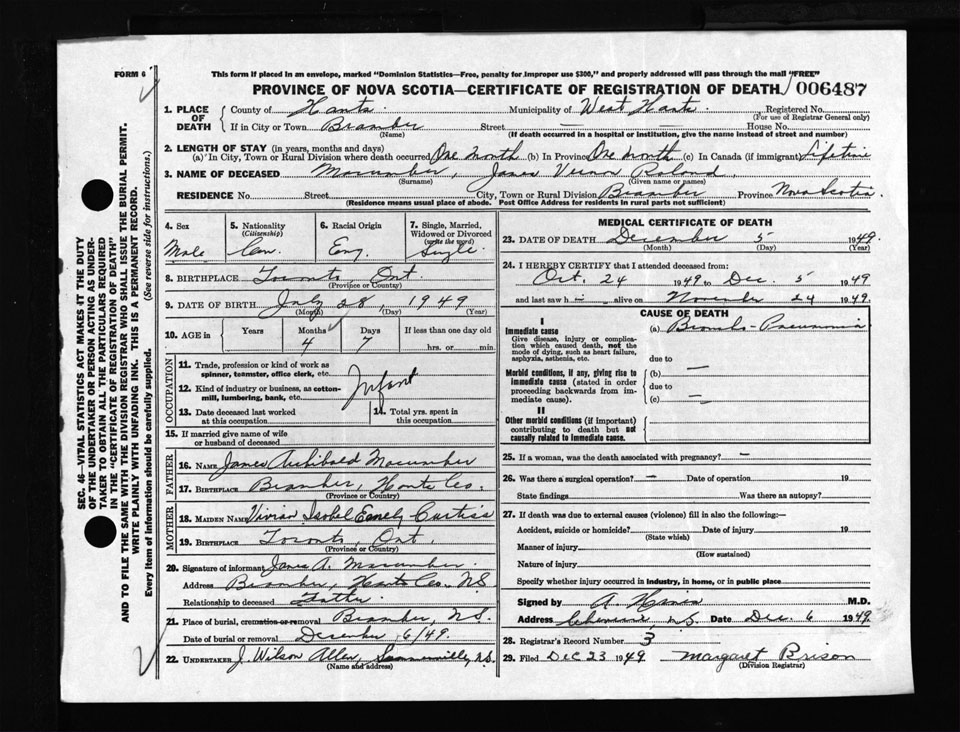 FORM 6
This form if placed in an envelope, marked "Dominion Statistics—Free, penalty for improper use $300," and properly addressed will pass through the mail "FREE"
PROVINCE OF NOVA SCOTIA—CERTIFICATE OF REGISTRATION OF DEATH 006487
SEC. 46—VITAL STATISTICS ACT MAKES IT THE DUTY
OF THE UNDERTAKER OR PERSON ACTING AS UNDER-
TAKER TO OBTAIN ALL THE PARTICULARS REQUIRED
IN THE "CERTIFICATE OF REGISTRATION OF DEATH"
AND TO FILE THE SAME WITH THE DIVISION REGISTRAR WHO SHALL ISSUE THE BURIAL PERMIT.
WRITE PLAINLY WITH UNFADING INK. THIS IS A PERMANENT RECORD.
Every item of information should be carefully supplied. (See reverse side for instructions.)
1. PLACE OF DEATH County of Hants Municipality of West Hants Registered No.
(For use of Registrar General only)
If in City or Town Bramber Street — House No.
(Name) (If death occurred in a hospital or institution, give the name instead of street and number)
2. LENGTH OF STAY (in years, months and days)
(a) In City, Town or Rural Division where death occurred One month (b) In Province One month (c) In Canada (if immigrant) Lifetime
3. NAME OF DECEASED Macumber, James Vernon Roland
(Surname) (Given name or names)
RESIDENCE No. Street City, Town or Rural Division Bramber Province Nova Scotia
(Residence means usual place of abode. Post Office Address for residents in rural parts not sufficient)
4. Sex 5. Nationality (Citizenship) 6. Racial Origin 7. Single, Married, Widowed or Divorced (write the word)
Male Can. Eng. Single
8. BIRTHPLACE Toronto Ont.
(Province or Country)
9. DATE OF BIRTH July 28, 1949
(Month) (Day) (Year)
10. AGE in Years Months Days If less than one day old
4 7 hrs. or min.
OCCUPATION
11. Trade, profession or kind of work as spinner, teamster, office clerk, etc.
12. Kind of industry or business, as cotton-mill, lumbering, bank, etc.
Infant
13. Date deceased last worked at this occupation 14. Total yrs. spent in this occupation
15. If married give name of wife or husband of deceased
FATHER
16. NAME James Archibald Macumber
17. BIRTHPLACE Bramber, Hants Co.
(Province or Country)
MOTHER
18. MAIDEN NAME Vivian Isobel Curtiss
19. BIRTHPLACE Toronto, Ont.
(Province or Country)
20. Signature of informant James A. Macumber
Address Bramber, Hants Co. N.S.
Relationship to deceased Father
21. Place of burial, cremation or removal Bramber, N.S.
Date of burial or removal December 6/49.
22. UNDERTAKER J. Wilson Allen, N.S.
(Name and address)
MEDICAL CERTIFICATE OF DEATH
23. DATE OF DEATH December 5 1949
(Month) (Day) (Year)
24. I HEREBY CERTIFY that I attended deceased from:
Oct. 24 1949 to Dec. 5 1949
and last saw h— alive on November 24 1949.
CAUSE OF DEATH
I
Immediate cause
Give disease, injury or complication which caused death, not the mode of dying, such as heart failure, asphyxia, asthenia, etc.
(a) Broncho-Pneumonia
due to
Morbid conditions, if any, giving rise to immediate cause (stated in order proceeding backwards from immediate cause)
(b) —
due to
(c) —
II
Other morbid conditions (if important) contributing to death but not causally related to immediate cause.
25. If a woman, was the death associated with pregnancy? —
26. Was there a surgical operation? — Date of operation 19
State findings Was there an autopsy?
27. If death was due to external causes (violence) fill in also the following:—
Accident, suicide or homicide? Date of injury 19
(State which)
Manner of injury
(How sustained)
Nature of injury
Specify whether injury occurred in industry, in home, or in public place
Signed by M.D.
Address N.S. Date Dec. 6 1949
28. Registrar's Record Number 3
29. Filed Dec 23 1949 Margaret Brison
(Division Registrar)